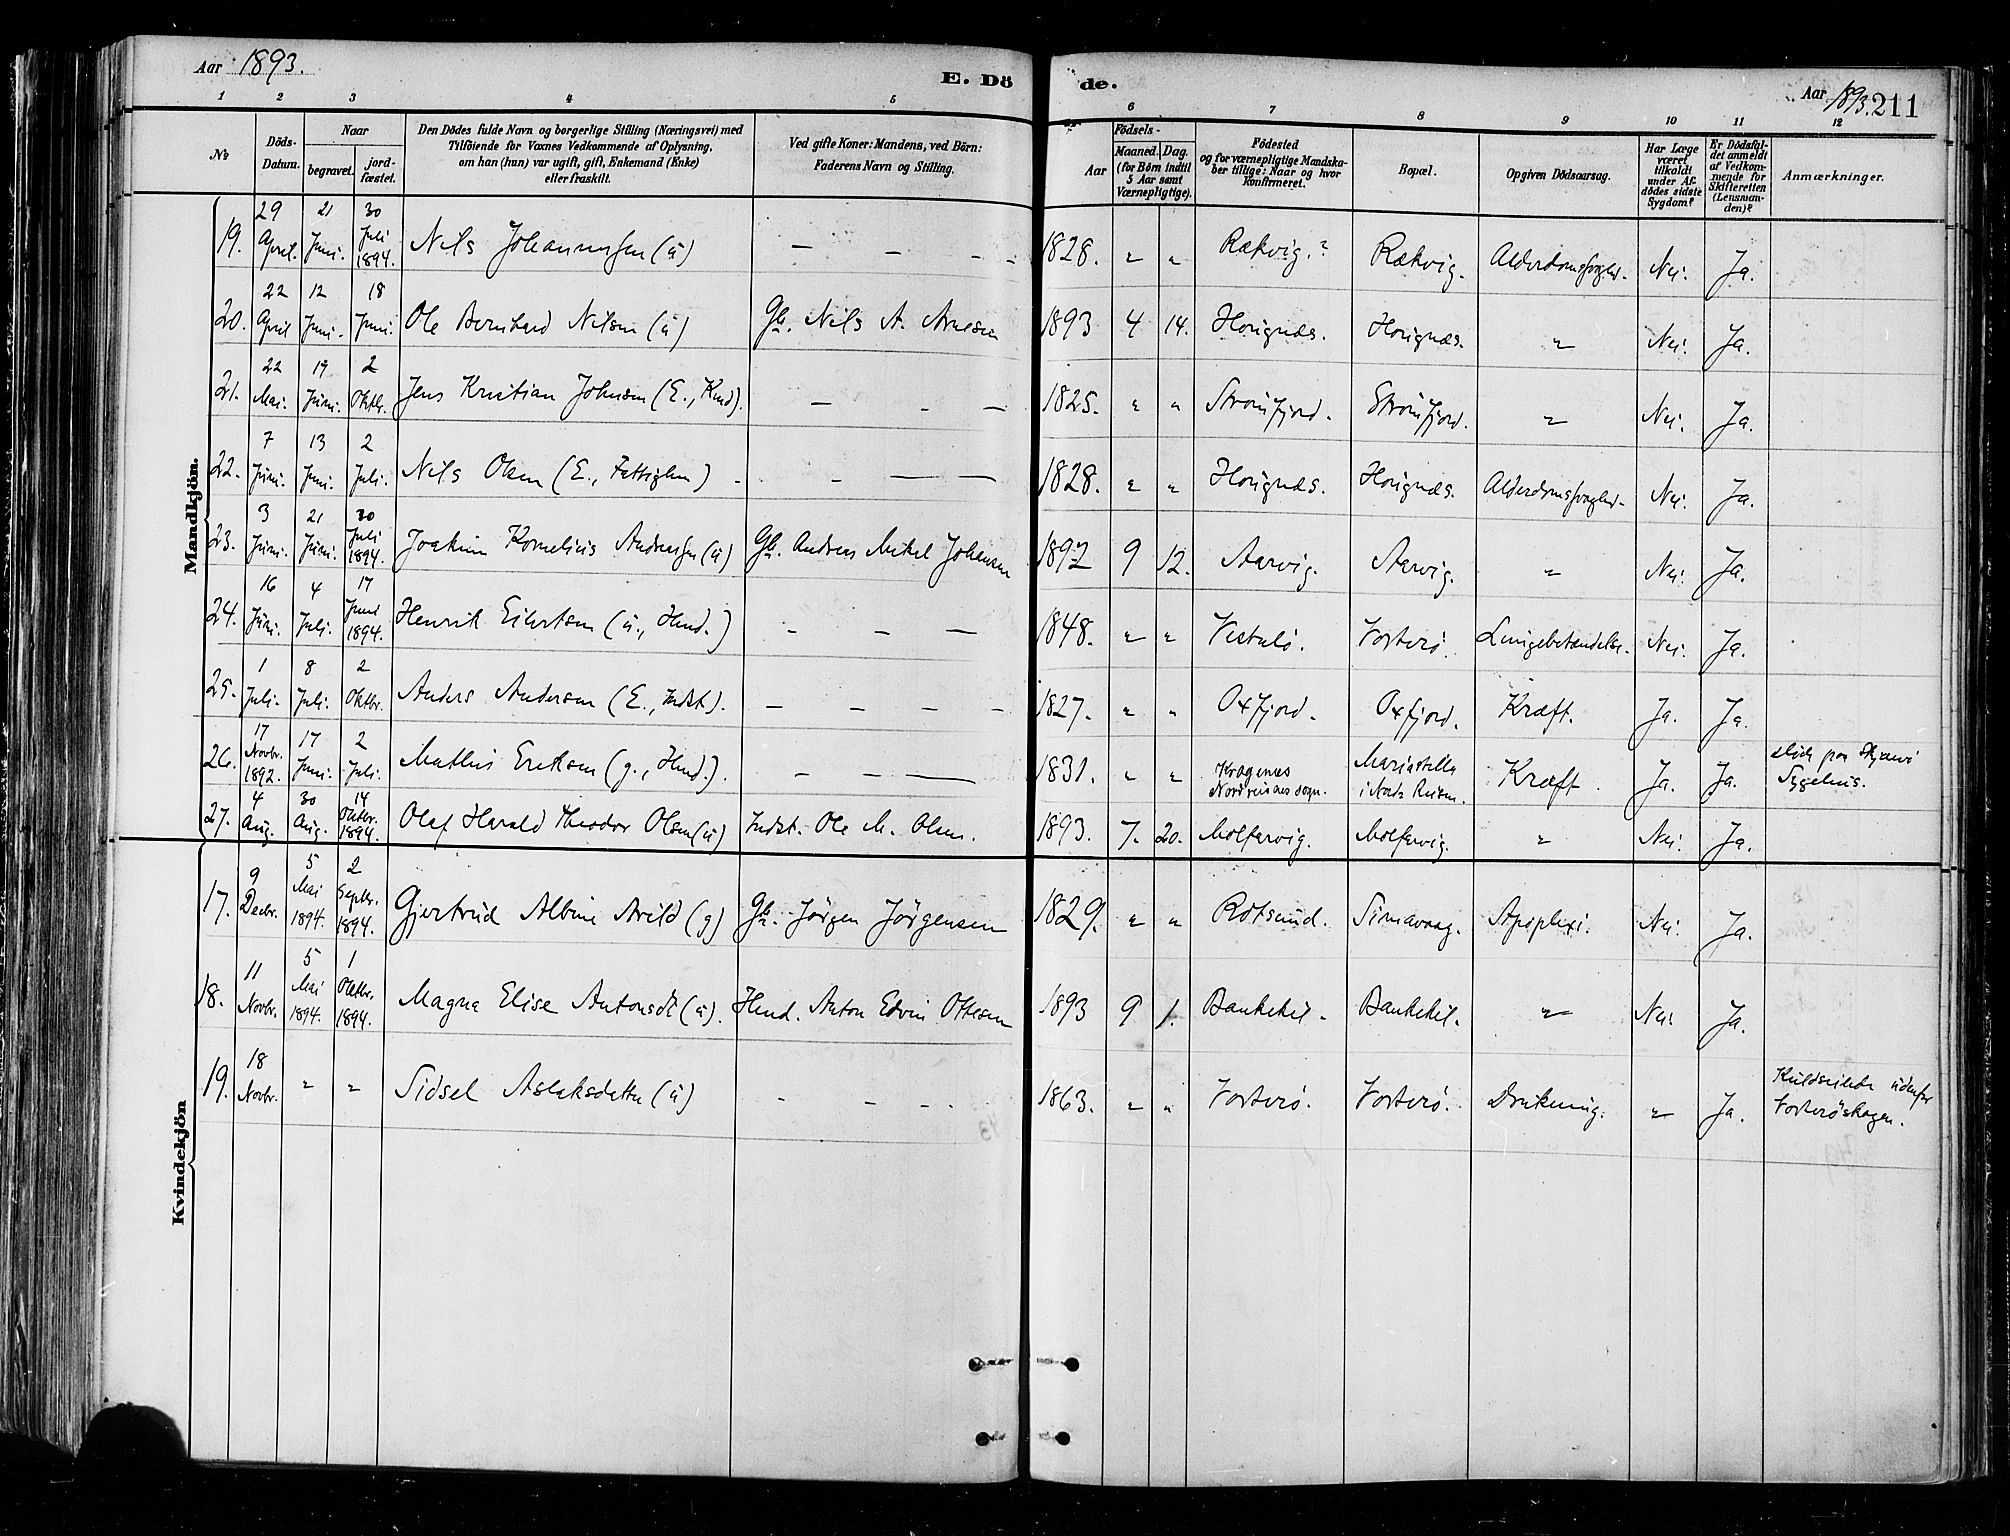 Aar 1893.
E. Döde.
Aar 1893. 211
1 2 3 4 5 6 7 8 9 10 11 12
No
Döds-Datum.
Naar
begravet.
jord-fæstet.
Den Dödes fulde Navn og borgerlige Stilling (Næringsvei) med
Tilföiende for Voxnes Vedkommende af Oplysning,
om han (hun) var ugift, gift, Enkemand (Enke)
eller fraskilt.
Ved gifte Koner: Mandens, ved Börn:
Faderens Navn og Stilling.
Födsels-
Aar
Maaned. Dag.
(for Börn indtil
5 Aar samt
Værnepligtige).
Födested
og for værnepligtige Mandska-
ber tillige: Naar og hvor
konfirmeret.
Bopæl.
Opgiven Dödsaarsag.
Har Læge
været
tilkaldt
under Af-
dödes sidste
Sygdom?
Er Dödsfal-
det anmeldt
af Vedkom-
mende for
Skifteretten
(Lensman-
den)?
Anmærkninger.
Mandkjön.
19. 29 April. 21 Juni. 30 Juli 1894. Nils Johannessen (u) — - - - 1828. " " Rækvig.? Rækvig. Alderdomssvaghed. Nei. Ja.
20. 22 April 12 Juni. 18 Juni. Ole Bernhard Nilsen (u) Gb. Nils A. Arnesen 1893 4 14. Havignæs. Havignæs. " Nei. Ja.
21. 22 Mai. 19 Juni. 2 Oktbr. Jens Kristian Johnsen (E., Kaard). — - — 1825. " " Strømfjord. Strømfjord. " Nei. Ja.
22. 7 Juni. 13 Juni. 2 Juli. Nils Olsen (E., Fattiglem) - - — — 1828. " " Havignæs. Havignæs. Alderdomssvaghed. Nei. Ja.
23. 3 Juni. 21 Juni. 30 Juli 1894. Joakim Kornelius Andreassen (u) Gb. Andreas Mikel Johansen 1892 9 12. Aarvig. Aarvig. " Nei. Ja.
24. 16 Juni. 4 Juli. 17 Juni 1894. Henrik Eilertsen (u., Hmd.) - — — 1848. " " Vorterø. Lungebetændelse. Nei. Ja.
25. 1 Juli. 8 Juli. 2 Oktbr. Anders Andersen (E., Indst). — - - - 1827. " " Oxfjord. Oxfjord. Kræft. Ja. Ja.
26. 17 Novbr. 1892. 17 Juni. 2 Juli. Mathis Eriksen (g., Hmd.). — - — 1831. " " Kragenes Nordreisens sogn. i Nordr. Reisen. Kræft. Ja. Ja. døde paa Skjærvø Sygehus.
27. 4 Aug. 30 Aug. 14 Oktbr. 1894. Olaf Harald Theodor Olsen (u) Indst. Ole M. Olsen. 1893. 7. 20. " Nei. Ja.
Kvindekjön
17. 9 Decbr. 5 Mai 1894. 2 Septbr. 1894. Gjertrud Albine Arild (g) Gb. Jørgen Jørgensen 1829. " " Rotsund. Simavaag. Apoplexi. Nei. Ja.
18. 11 Novbr. 5 Mai 1894. 1 Oktbr. 1894. Magna Elise Antonsdt (u). Hmd. Anton Edvin Ottesen 1893 9 1. Bankekil. Bankekil. " Nei. Ja.
19. 18 Novbr. " " Sidsel Aslaksdatter (u) - — - 1863. " " Vorterø. Vorterø. Drukning. " Ja. Kuldseilede udenfor Vorterøskagen.